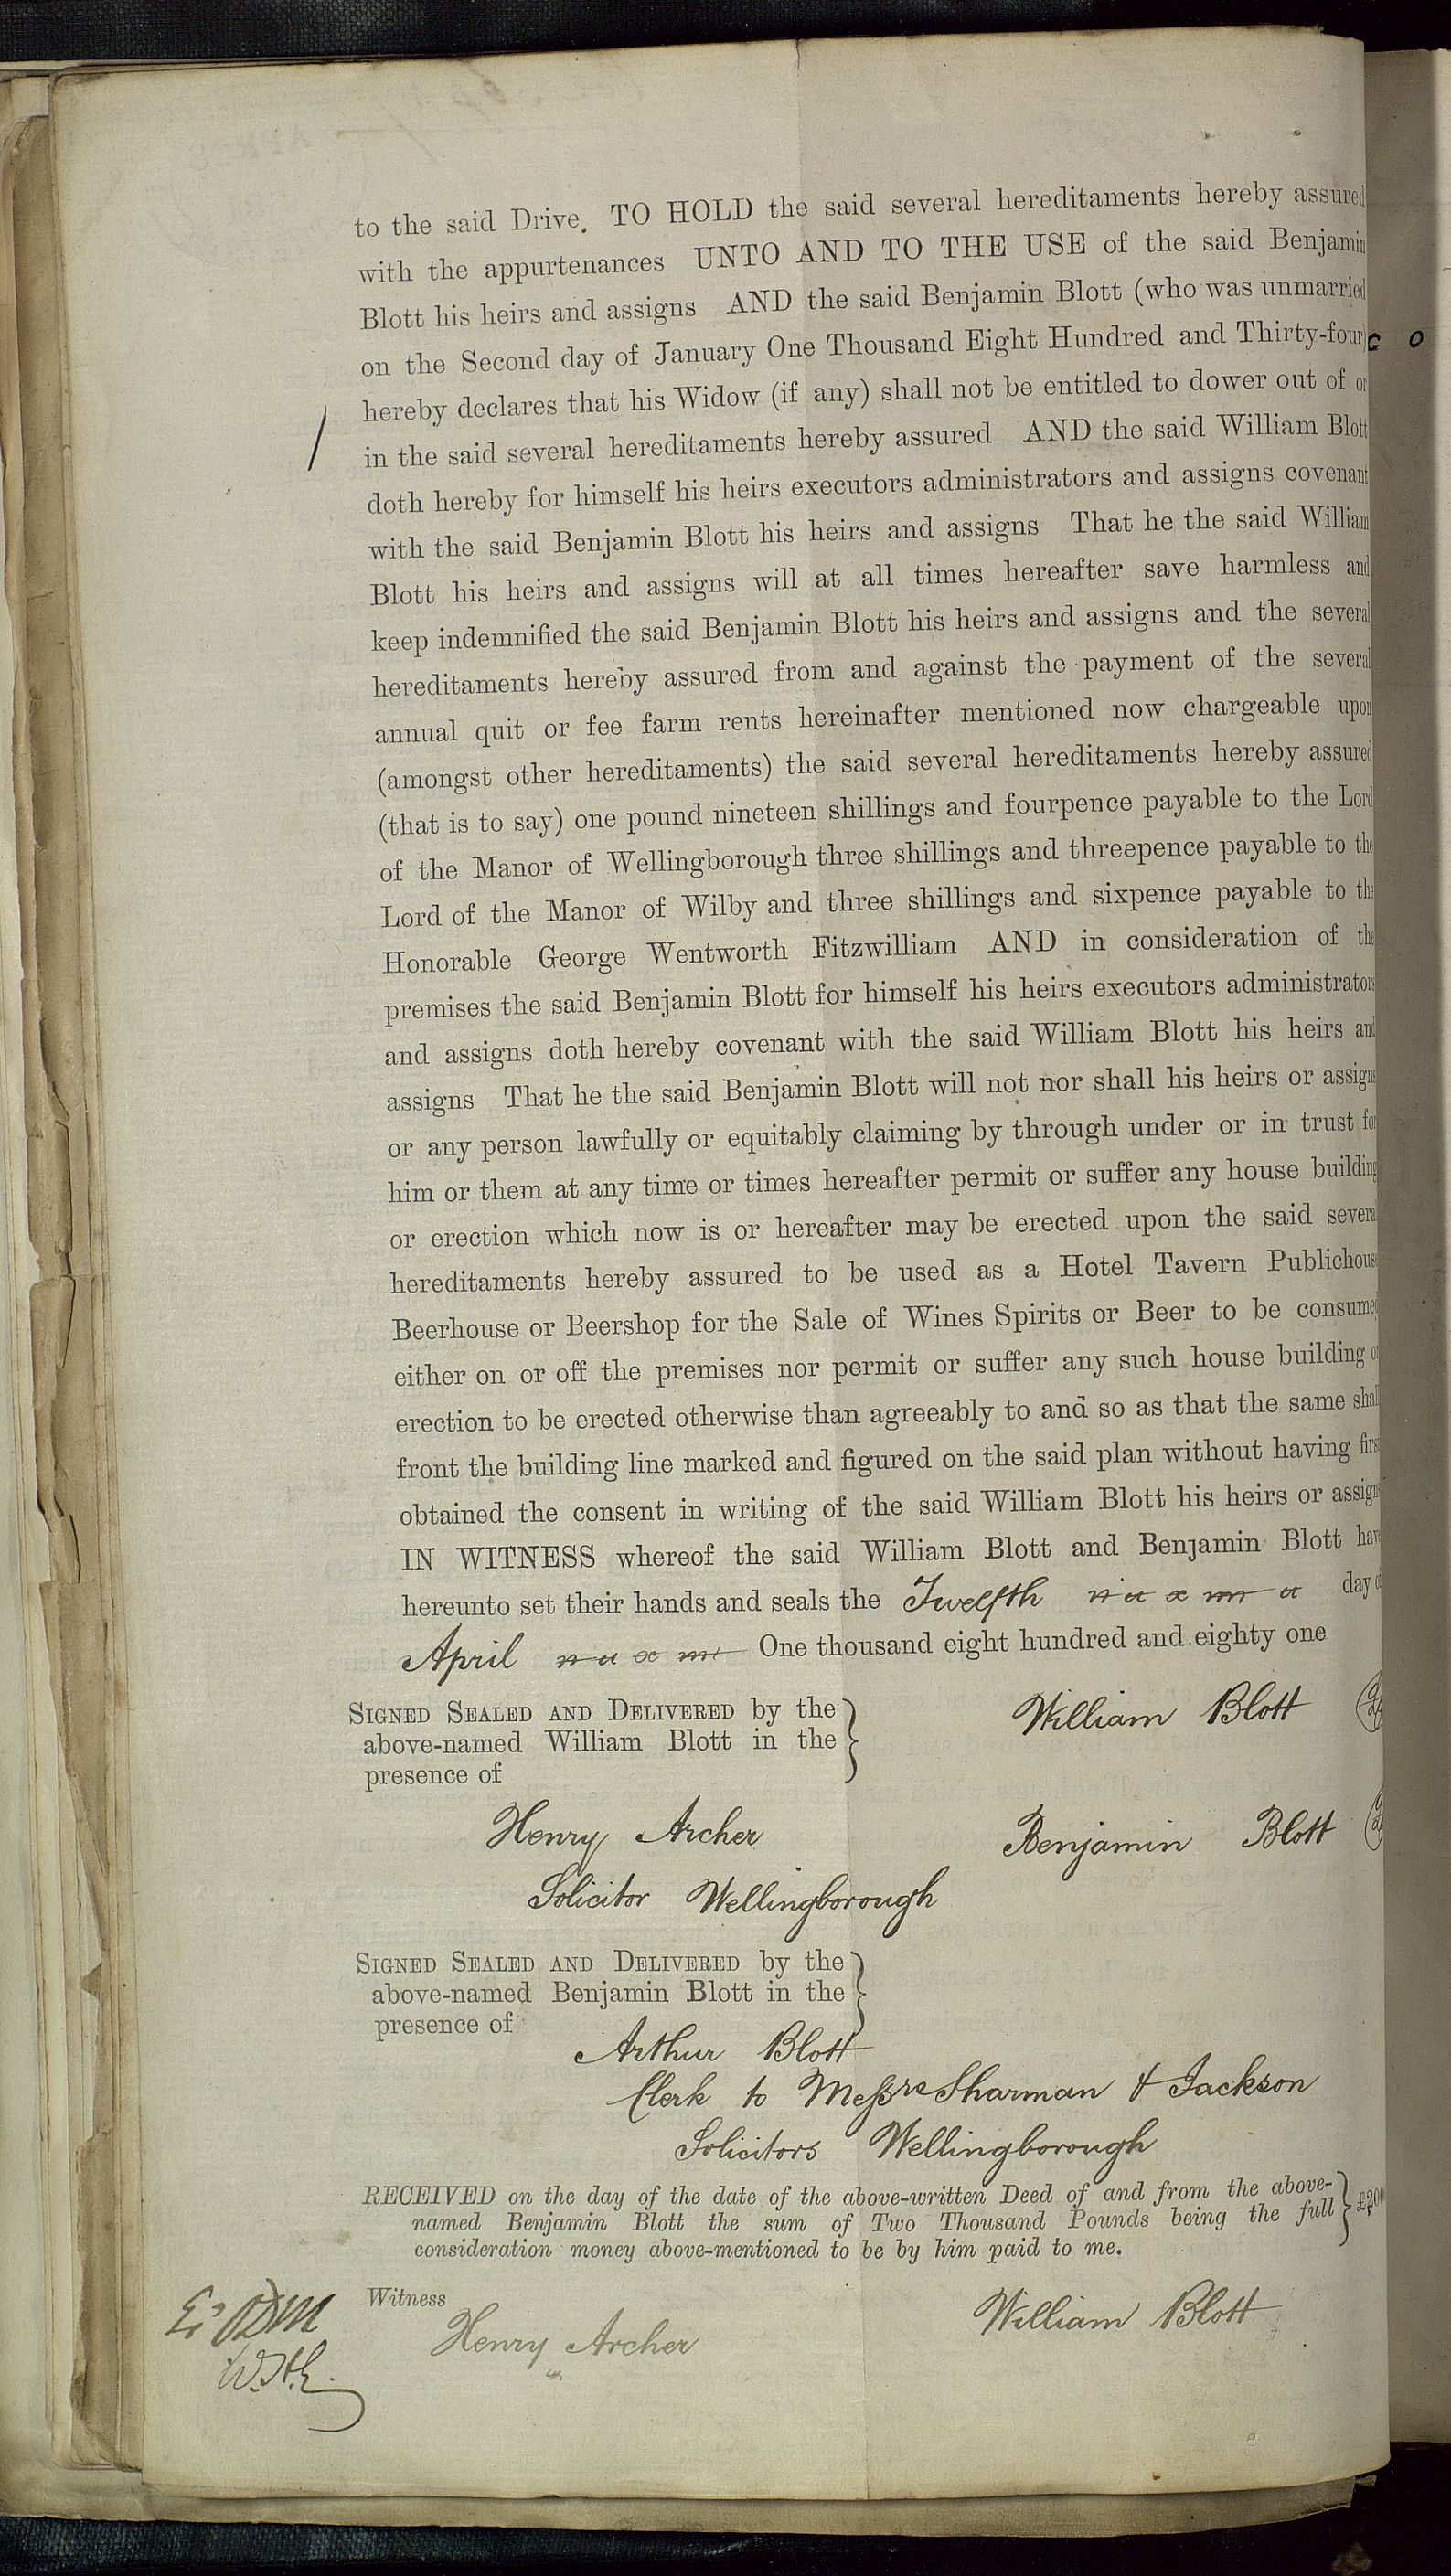 to the said Drive. TO HOLD the said several hereditaments hereby assured
with the appurtenances UNTO AND TO THE USE of the said Benjamin
Blott his heirs and assigns AND the said Benjamin Blott (who was unmarried
on the Second day of January One Thousand Eight Hundred and Thirty-four)
hereby declares that his Widow (if any) shall not be entitled to dower out of or
in the said several hereditaments hereby assured AND the said William Blott
doth hereby for himself his heirs executors administrators and assigns covenant
with the said Benjamin Blott his heirs and assigns That he the said William
Blott his heirs and assigns will at all times hereafter save harmless and
keep indemnified the said Benjamin Blott his heirs and assigns and the several
hereditaments hereby assured from and against the payment of the several
annual quit or fee farm rents hereinafter mentioned now chargeable upon
(amongst other hereditaments) the said several hereditaments hereby assured
(that is to say) one pound nineteen shillings and fourpence payable to the Lord
of the Manor of Wellingborough three shillings and threepence payable to the
Lord of the Manor of Wilby and three shillings and sixpence payable to the
Honorable George Wentworth Fitzwilliam AND in consideration of the
premises the said Benjamin Blott for himself his heirs executors administrators
and assigns doth hereby covenant with the said William Blott his heirs and
assigns That he the said Benjamin Blott will not nor shall his heirs or assigns
or any person lawfully or equitably claiming by through under or in trust for
him or them at any time or times hereafter permit or suffer any house building
or erection which now is or hereafter may be erected upon the said several
hereditaments hereby assured to be used as a Hotel Tavern Publichouse
Beerhouse or Beershop for the Sale of Wines Spirits or Beer to be consumed
either on or off the premises nor permit or suffer any such house building or
erection to be erected otherwise than agreeably to and so as that the same shall
front the building line marked and figured on the said plan without having first
obtained the consent in writing of the said William Blott his heirs or assigns
IN WITNESS whereof the said William Blott and Benjamin Blott have
hereunto set their hands and seals the Twelfth day of
April One thousand eight hundred and eighty one
SIGNED SEALED AND DELIVERED by the
above-named William Blott in the
presence of
William Blott
Henry Archer
Solicitor Wellingborough
Benjamin Blott
SIGNED SEALED AND DELIVERED by the
above-named Benjamin Blott in the
presence of
Arthur Blott
Clerk to Messrs Sharman & Jackson
Solicitors Wellingborough
RECEIVED on the day of the date of the above-written Deed of and from the above-
named Benjamin Blott the sum of Two Thousand Pounds being the full
consideration money above-mentioned to be by him paid to me.
Witness
Henry Archer
William Blott